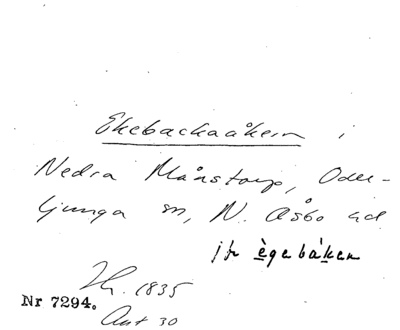 Ekebackaåkern i
Nedra Månstorp, Oder-
ljunga sn, N. Åsbo hd
jfr ègebàken
Nr 7294.
1835
Akt 30